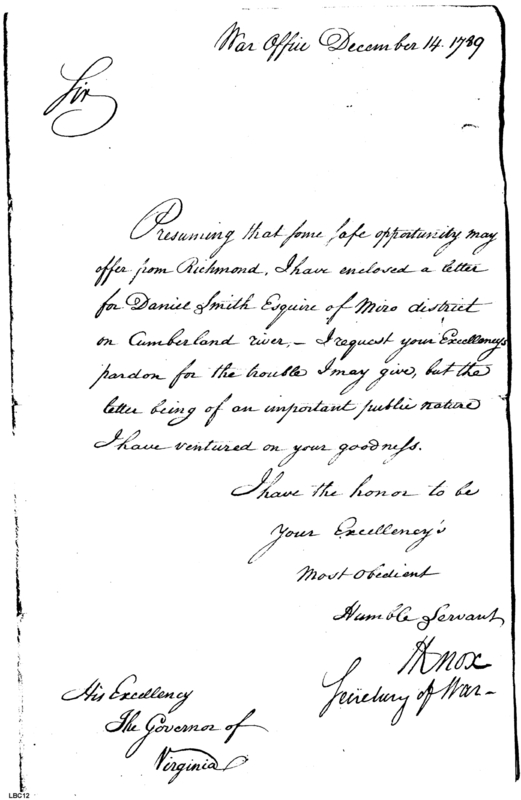 War Office December 14. 1789
Sir
Presuming that some safe opportunity may
offer from Richmond, I have enclosed a letter
for Daniel Smith Esquire of Miro district
on Cumberland river, – I request your Excellency's
pardon for the trouble I may give, but the
letter being of an important public nature
I have ventured on your goodness.
I have the honor to be
Your Excellency's
Most Obedient
Humble Servant
HKnox
Secretary of War –
His Excellency
The Governor of
Virginia
LBC12